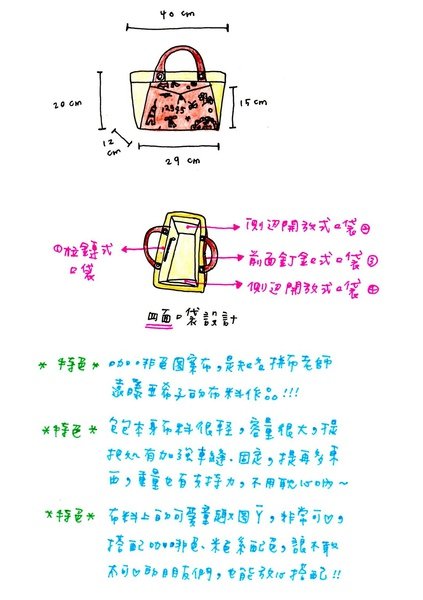 40 cm
20 cm
15 cm
12 cm
29 cm
側边開放式口袋②
①拉鏈式口袋
前面釘釦式口袋③
側边開放式口袋④
四面口袋設計
*特色* 咖啡色圖案布,是知名拼布老師
遠曚亜希子的布料作品!!!
*特色* 包包本身布料很輕,容量很大,提
把処有加強車縫、固定,提再多東
西,重量也有支持力,不用耽心喲~
*特色* 布料上的可愛童趣圖丫,非常可♡,
搭配咖啡色、米色系配色,讓不敢
不可♡的朋友們,也能放心搭配!!